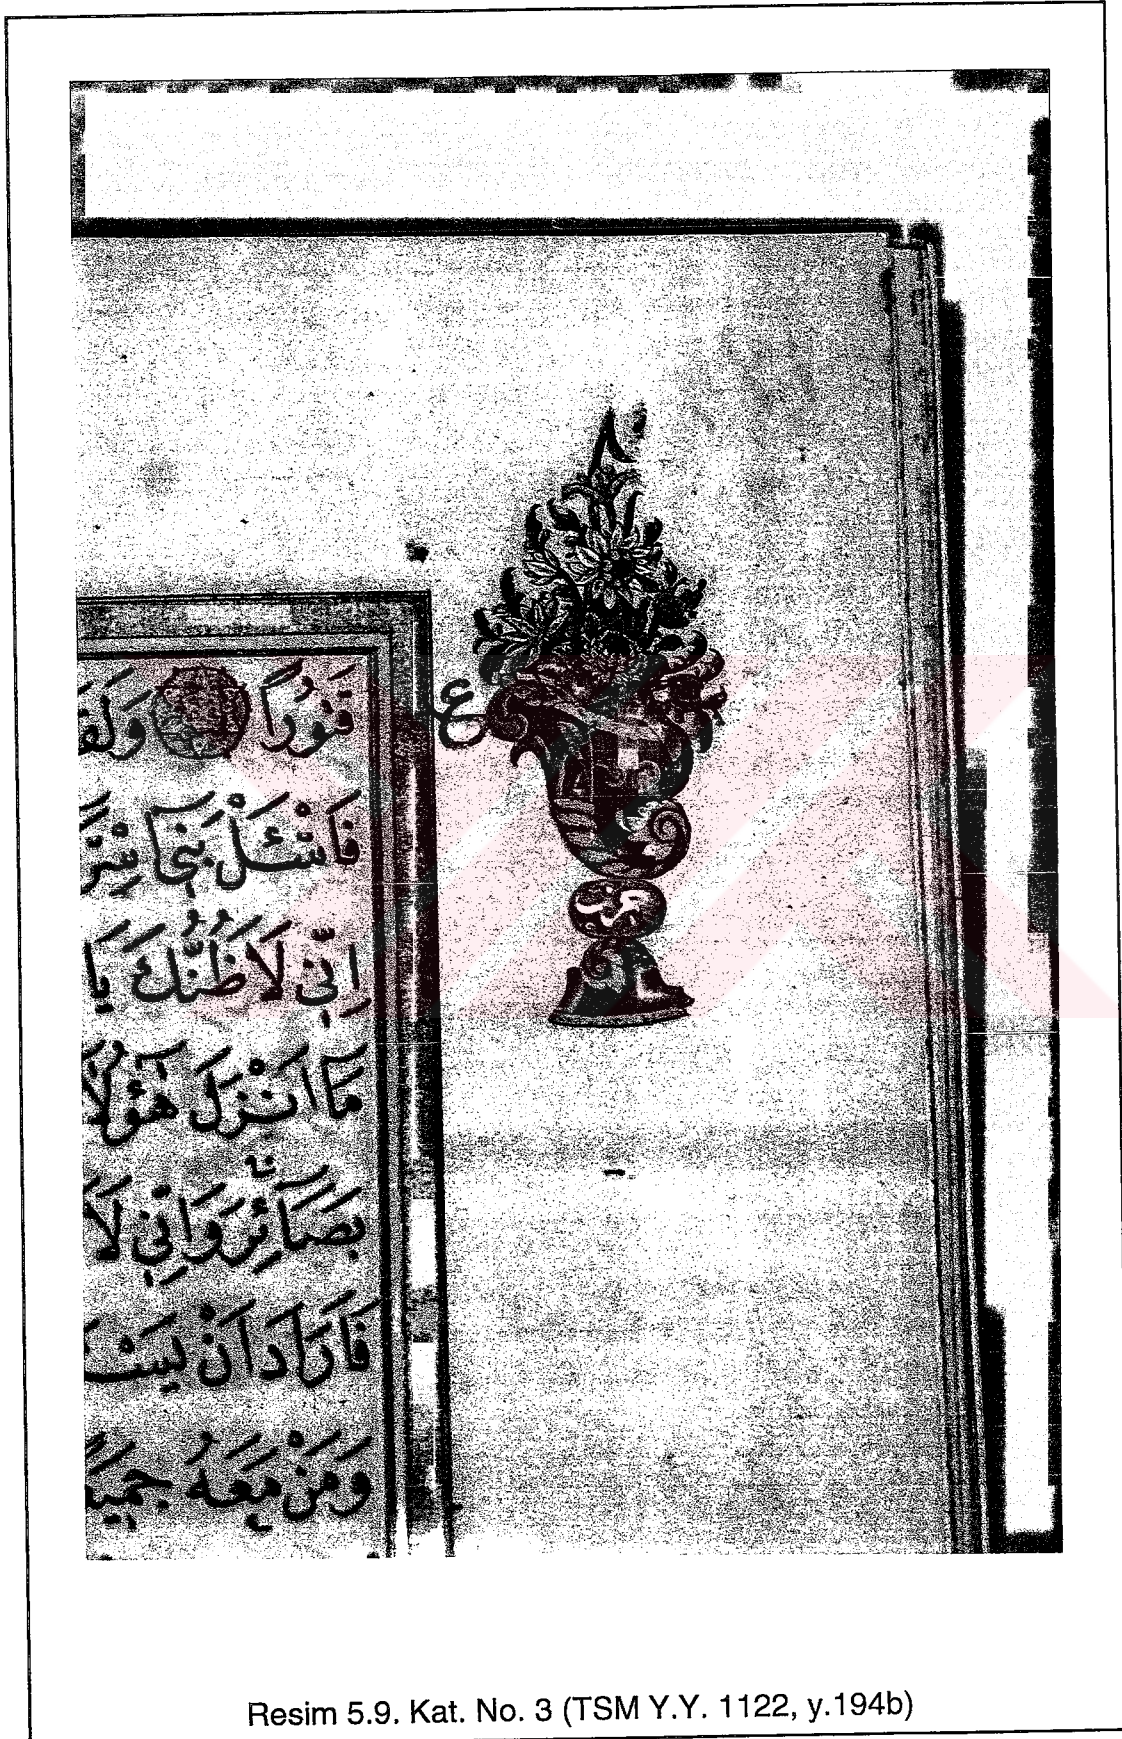 قَتُورًا وَلَقَ
ع
فَاسْئَلْ بَنٖٓى اِسْرَٓ
حزب
اِنّٖى لَاَظُنُّكَ يَا
مَٓا اَنْزَلَ هٰٓؤُلَٓا
بَصَٓائِرَ وَاِنّٖى لَا
فَاَرَادَ اَنْ يَسْتَ
وَمَنْ مَعَهُ جَمٖيعً
Resim 5.9. Kat. No. 3 (TSM Y.Y. 1122, y.194b)